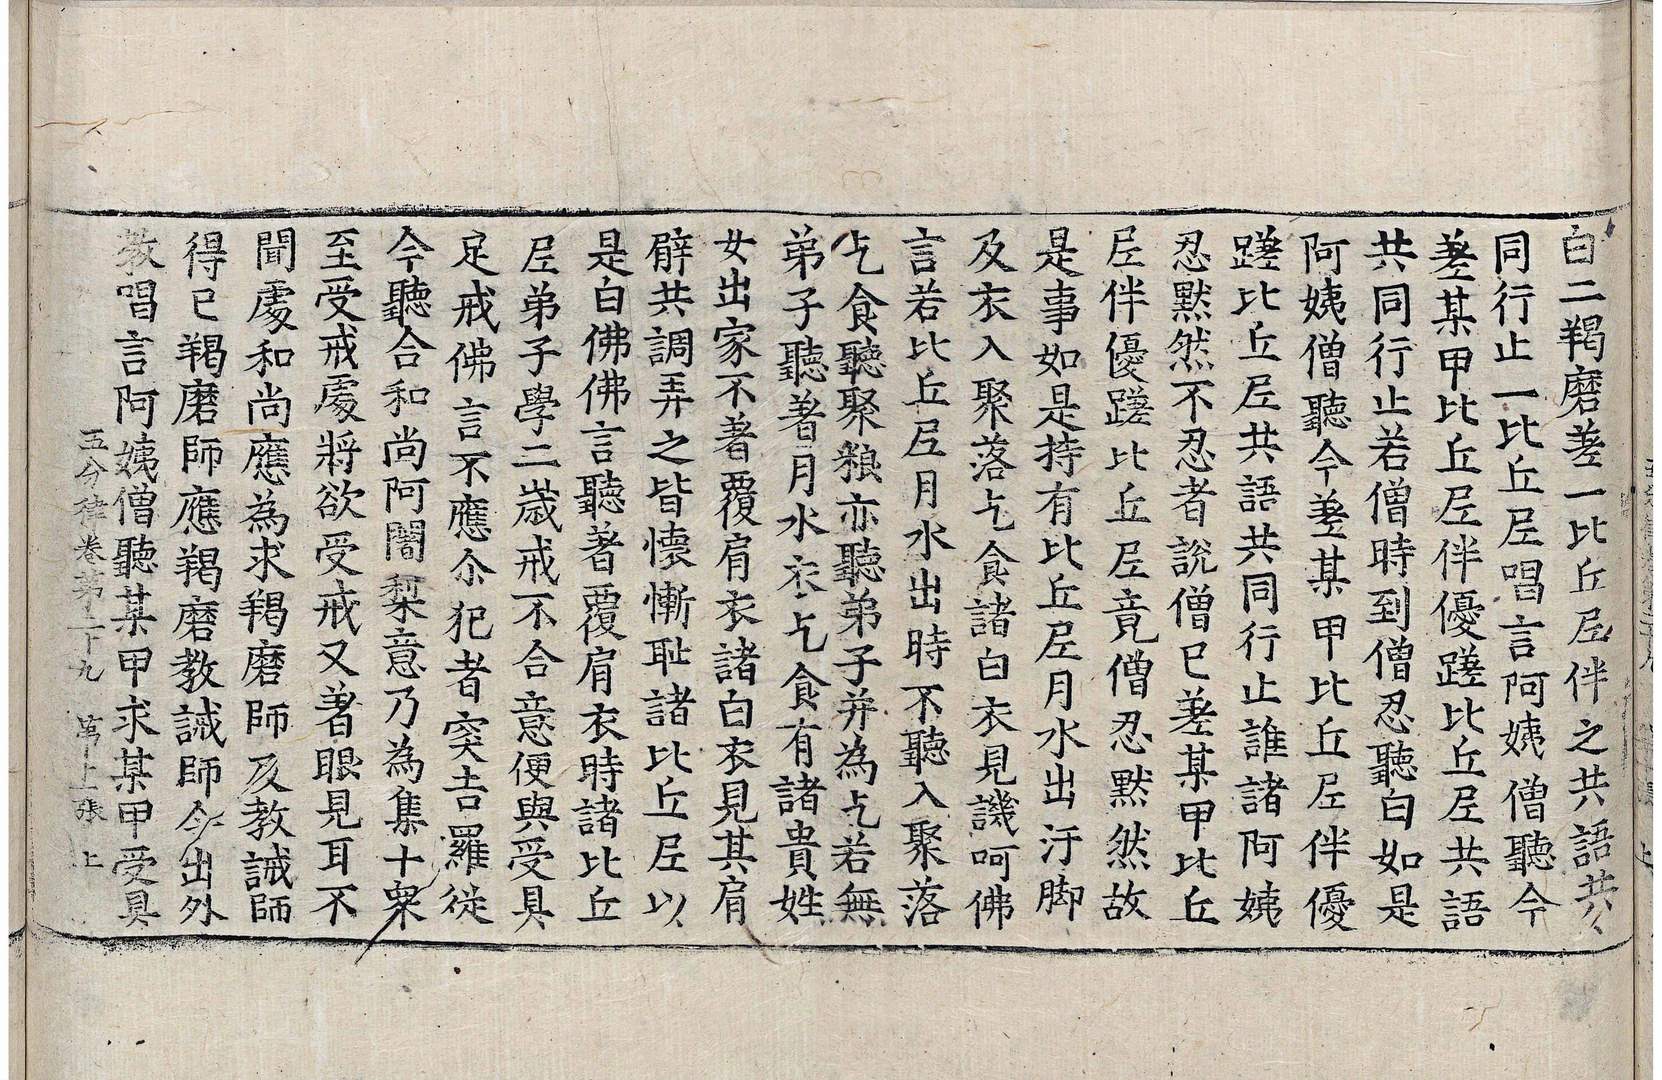 白二羯磨差一比丘尼伴之共語共
同行止一比丘尼唱言阿姨僧聽今
差某甲比丘尼伴優蹉比丘尼共語
共同行止若僧時到僧忍聽白如是
阿姨僧聽今差某甲比丘尼伴優
蹉比丘尼共語共同行止誰諸阿姨
忍黙然不忍者說僧已差某甲比丘
尼伴優蹉比丘尼竟僧忍黙然故
是事如是持有比丘尼月水出汙脚
及衣入聚落乞食諸白衣見譏呵佛
言若比丘尼月水出時不聽入聚落
乞食聽聚粮亦聽弟子并為乞若無
弟子聽著月水衣乞食有諸貴姓
女出家不著覆肩衣諸白衣見其肩
臂共調弄之皆懐慚耻諸比丘尼以
是白佛佛言聽著覆肩衣時諸比丘
尼弟子學二歲戒不合意便與受具
足戒佛言不應尒犯者突吉羅從
今聽合和尚阿闍梨意乃為集十衆
至受戒處將欲受戒又著眼見耳不
聞處和尚應為求羯磨師及教誡師
得已羯磨師應羯磨教誡師令出外
五分律卷第二十九 第十上張 上
教唱言阿姨僧聽某甲求某甲受具